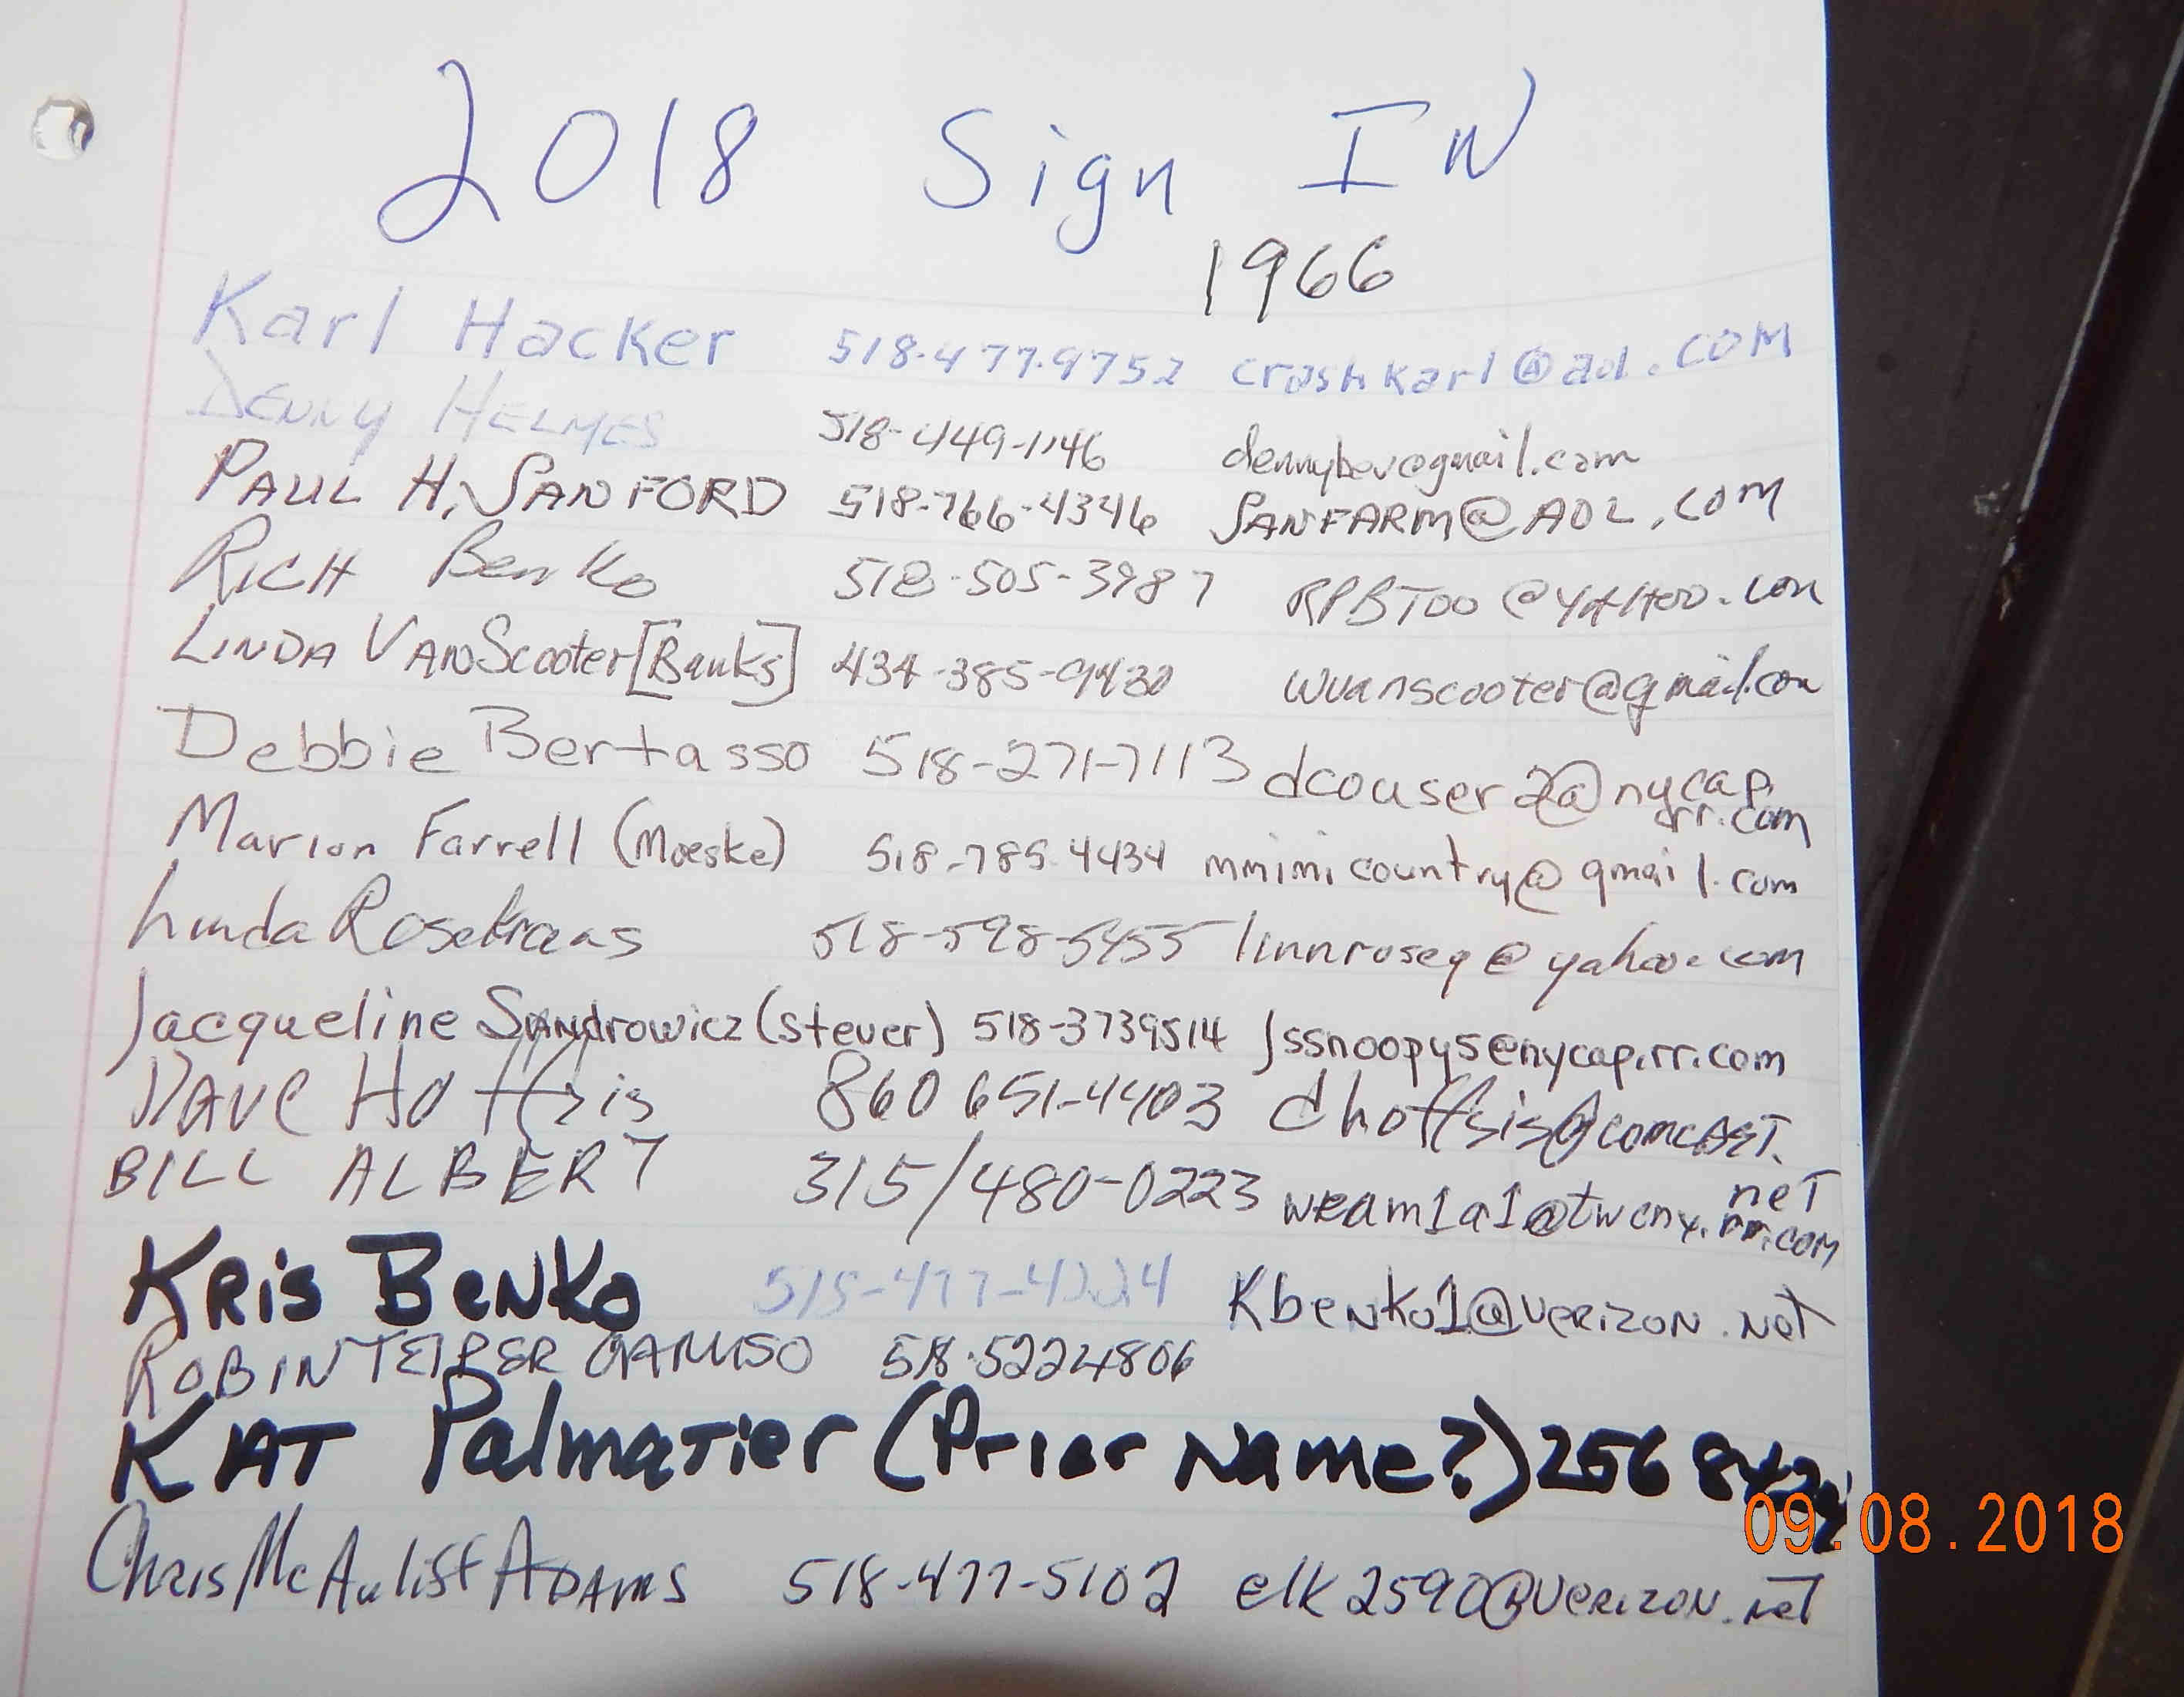 2018 Sign IN
1966
Karl Hacker 518-477-9752 crashkarl@aol.COM
DENNY HELMES 518-449-1146 dennybev@gmail.com
PAUL H. SANFORD 518-766-4346 SANFARM@AOL.COM
RICH Benko 518-505-3987 RPBTOO@YAHOO.com
LINDA VANScooter[Banks] 434-385-9430 wvanscooter@gmail.com
Debbie Bertasso 518-271-7113 dcouser2@nycap.
rr.com
Marion Farrell (Moeske) 518-785-4434 mmimicountry@gmail.com
Linda Rosekrans 518-598-5455 linnroseq@yahoo.com
Jacqueline SANdrowicz (Stever) 518-3739514 Jssnoopy5@nycap.rr.com
DAVE Hoffsis 860 651-4403 dhoffsis@comcAST.
neT
BILL ALBERT 315/480-0223 weam1a1@twcny.rr.com
KRis BeNKo 518-477-4224 Kbenko1@VeRiZON.Net
ROBIN TEIPER CARUSO 518-5224806
KAT PalmaTier (Prior Name?) 256
Chris McAulift ADAMS 518-477-5102 elk2590@VeRIZON.net
09.08.2018